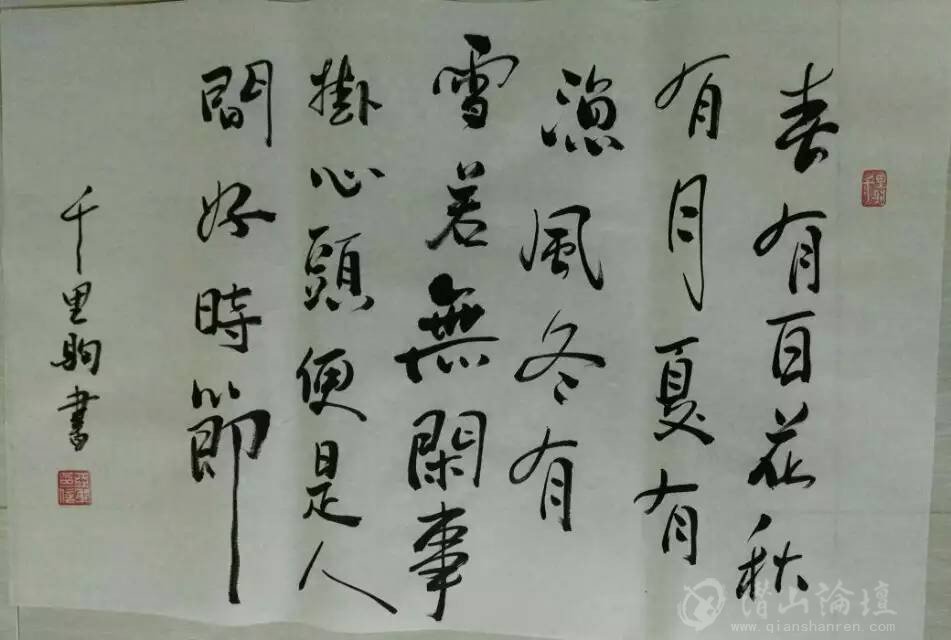 春有百花秋
有月夏有
涼風冬有
雪若無閑事
掛心頭便是人
間好時節
千里駒書
潛山論壇
www.qianshanren.com